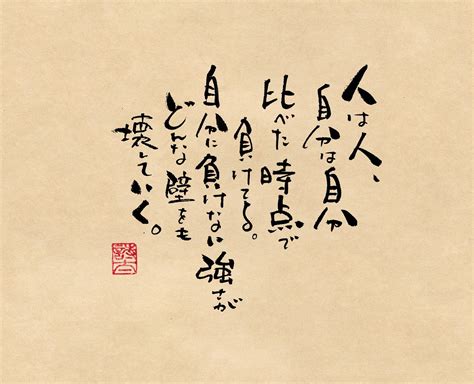 人は人、
自分は自分
比べた時点で
負けてる。
自分に負けない強さが
どんな壁をも
壊していく。